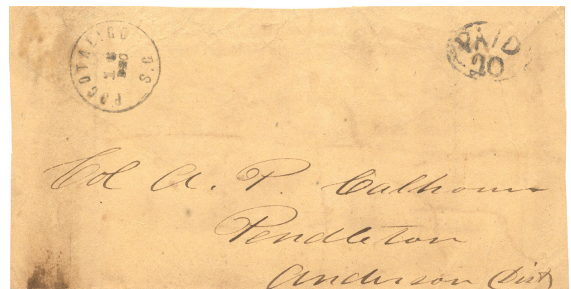 POCOTALIGO S.C.
DEC
PAID
20
Col A. P. Calhoun
Pendleton
Anderson (Dist)